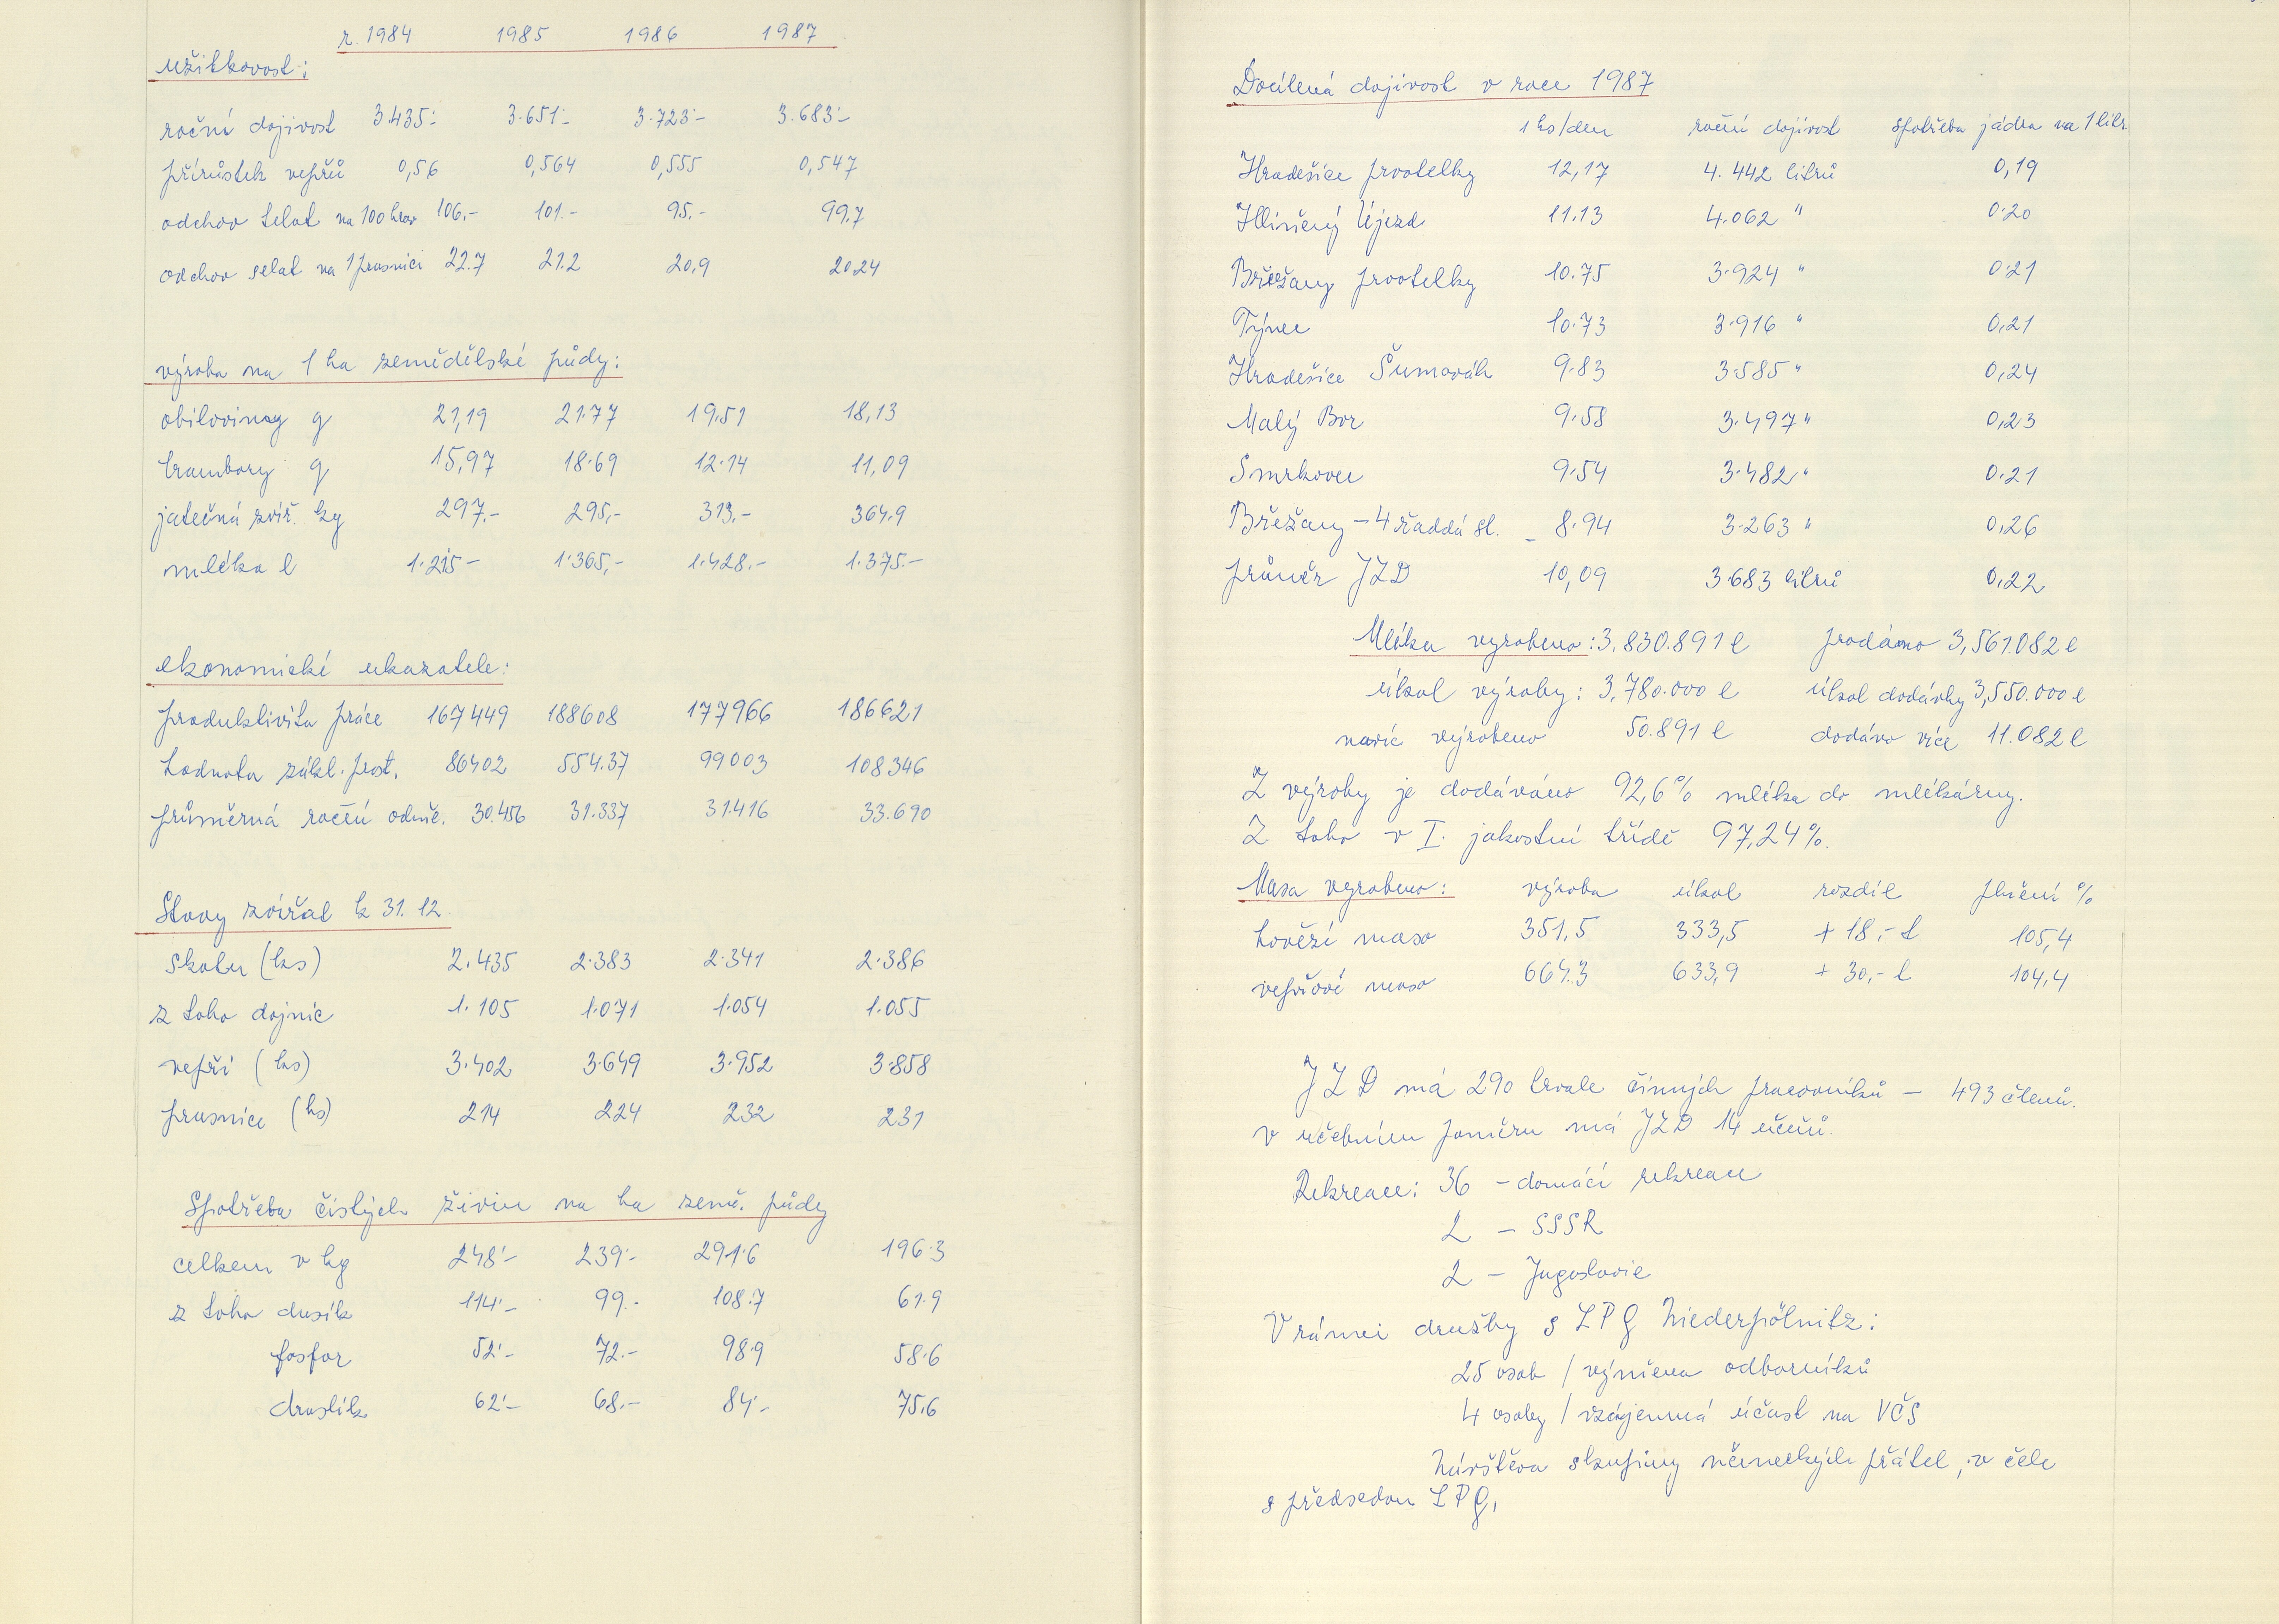 r. 1984 1985 1986 1987
užitkovost:
roční dojivost 3435.- 3.651.- 3.723.- 3.683.-
přírůstek vepřů 0,56 0,564 0,555 0,547
odchov telat na 100 krav 106.- 101.- 95.- 99.7
odchov selat na 1 prasnici 22.7 21.2 20,9 20.24
výroba na 1 ha zemědělské půdy:
obiloviny q 21,19 21.77 19.51 18,13
brambory q 15,97 18.69 12.14 11,09
jatečná zvíř. kg 297.- 295,- 313.- 364.9
mléka l 1.215- 1.365,- 1.428.- 1.375.-
ekonomické ukazatele:
produktivita práce 167449 188608 177966 186621
hodnota zákl. prost. 86402 554.37 99003 108346
průměrná roční odmě. 30.456 31.337 31.416 33.690
Stavy zvířat k 31. 12.
Skotu (ks) 2.435 2.383 2.341 2.386
z toho dojnic 1.105 1.071 1.054 1.055
vepři (ks) 3.402 3.649 3.952 3.858
prasnice (ks) 214 224 232 231
Spotřeba čistých živin na ha země. půdy
celkem v kg 248.- 239.- 291.6 196.3
z toho dusík 114.- 99.- 108.7 61.9
fosfor 52.- 72.- 98.9 58.6
draslík 62.- 68.- 84.- 75.6
Docílená dojivost v roce 1987
1 ks/den roční dojivost spotřeba jádra na 1 litr
Hradešice prvotelky 12,17 4.442 litrů 0,19
Hliněný Újezd 11.13 4.062 " 0.20
Břežany prvotelky 10.75 3.924 " 0.21
Týnec 10.73 3.916 " 0,21
Hradešice Šumavák 9.83 3.585 " 0,24
Malý Bor 9.58 3.497 " 0,23
Smrkovec 9.54 3.482 " 0.21
Břežany - 4 řaddá st. - 8.94 3.263 " 0,26
průměr JZD 10,09 3.683 litrů 0,22
Mléka vyrobeno: 3.830.891 l prodáno 3,561.082 l
úkol výroby: 3,780.000 l úkol dodávky 3,550.000 l
navíc vyrobeno 50.891 l dodáno více 11.082 l
Z výroby je dodáváno 92,6% mléka do mlékárny.
Z toho v I. jakostní třídě 97,24%.
Masa vyrobeno: výroba úkol rozdíl plnění %
hovězí maso 351,5 333,5 + 18,- t 105,4
vepřové maso 664.3 633,9 + 30,- t 104,4
JZD má 290 trvale činných pracovníků - 493 členů.
v učebním poměru má JZD 14 učňů.
Rekreace: 36 - domácí rekreace
2 - SSSR
2 - Jugoslavie
V rámci družby s LPG Niederpölnitz:
25 osob / výměna odborníků
4 osoby / vzájemná účast na VČS
Návštěva skupiny německých přátel, v čele
s předsedou LPG,